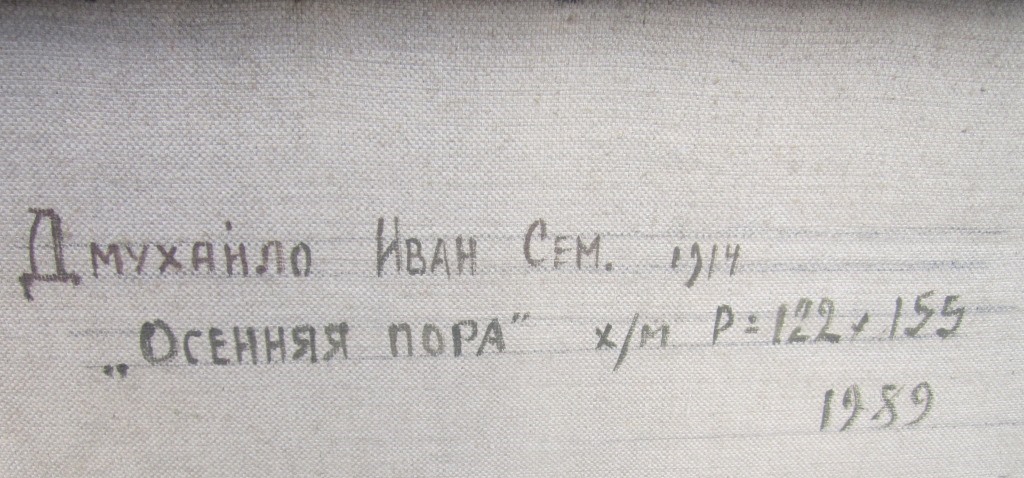 Дмухайло Иван Сем. 1914
„Осенняя пора” х/м Р=122х155
1989